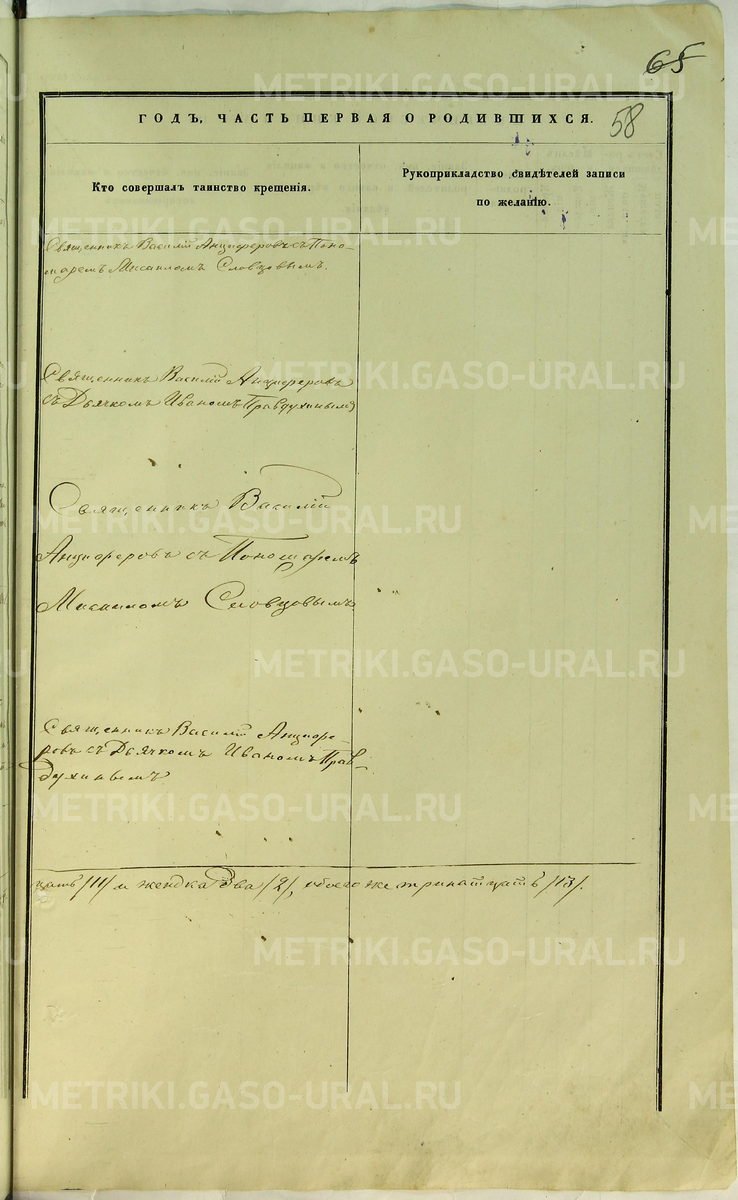 65
58
ГОДЪ, ЧАСТЬ ПЕРВАЯ О РОДИВШИХСЯ.
Кто совершалъ таинство крещенія.
Рукоприкладство свидѣтелей записи
по желанію.
Священникъ Василій Анциферовъ съ Поно-
маремъ Мисаиломъ Словцовымъ.
Священникъ Василій Анциферовъ
съ Дьячкомъ Иваномъ Правдухинымъ
Священникъ Василій
Анциферовъ съ Пономаремъ
Мисаиломъ Словцовымъ
Священникъ Василій Анцифе-
ровъ съ Дьячкомъ Иваномъ Прав-
духинымъ
цать /11/ и женска два /2/, обоего же тринатцать /13/.
METRIKI.GASO-URAL.RU